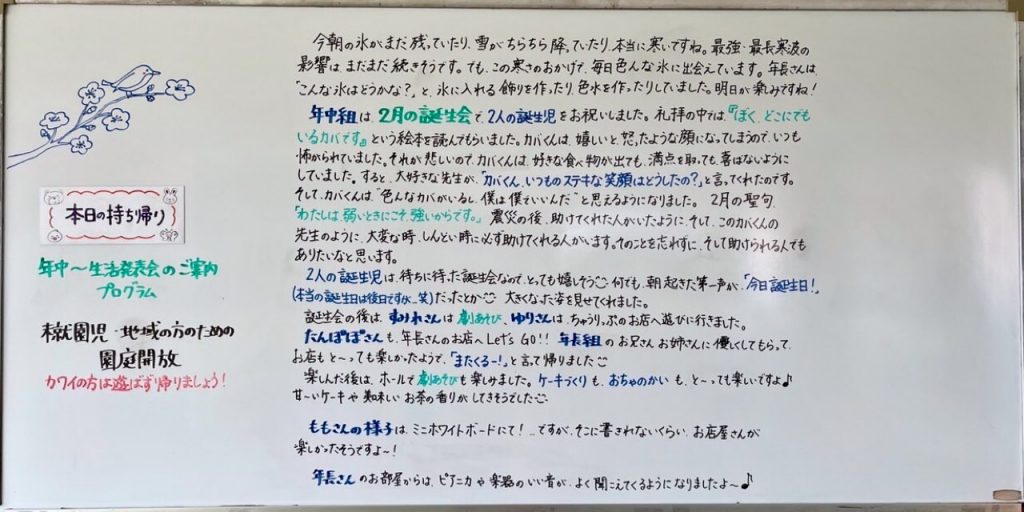 本日の持ち帰り
年中～生活発表会のご案内
プログラム
未就園児・地域の方のための
園庭開放
カワイの方は遊ばず帰りましょう！
今朝の氷がまだ残っていたり、雪がちらちら降っていたり、本当に寒いですね。最強・最長寒波の
影響は、まだまだ続きそうです。でも、この寒さのおかげで、毎日色んな氷に出会えています。年長さんは、
「こんな氷はどうかな？」と、氷に入れる飾りを作ったり、色水を作ったりしていました。明日が楽しみですね！
年中組は、2月の誕生会で、2人の誕生児をお祝いしました。礼拝の中では、『ぼく、どこにでも
いるカバです』という絵本を読んでもらいました。カバくんは、嬉しいと怒ったような顔になってしまうので、いつも
怖がられていました。それが悲しいので、カバくんは、好きな食べ物が出ても、満点を取っても、喜ばないように
していました。すると、大好きな先生が、「カバくん、いつものステキな笑顔はどうしたの？」と言ってくれたのです。
そして、カバくんは“色んなカバがいるし、僕は僕でいいんだ”と思えるようになりました。2月の聖句、
「わたしは、弱いときにこそ、強いからです。」震災の後、助けてくれた人がいたように、そして、このカバくんの
先生のように、大変な時、しんどい時に必ず助けてくれる人がいます。そのことを忘れずに、そして助けられる人でも
ありたいなと思います。
2人の誕生児は、待ちに待った誕生会なので、とっても嬉しそう 何でも、朝起きた第一声が、「今日誕生日！」
(本当の誕生日は後日ですが…笑)だったとか 大きくなった姿を見せてくれました。
誕生会の後は、すみれさんは劇あそび、ゆりさんは、ちゅうりっぷのお店へ遊びに行きました。
たんぽぽさんも、年長さんのお店へLet's GO!! 年長組のお兄さんお姉さんに優しくしてもらって、
お店もと～っても楽しかったようで、「またくるー！」と言って帰りました
楽しんだ後は、ホールで劇あそびも楽しみました。ケーキづくりも、おちゃのかいも、と～っても楽しいですよ♪
甘～いケーキや美味しいお茶の香りがしてきそうでした
ももさんの様子は、ミニホワイトボードにて！…ですが、そこに書きれないくらい、お店屋さんが
楽しかったそうですよ～！
年長さんのお部屋からは、ピアニカや楽器のいい音が、よく聞こえてくるようになりましたよ～♪